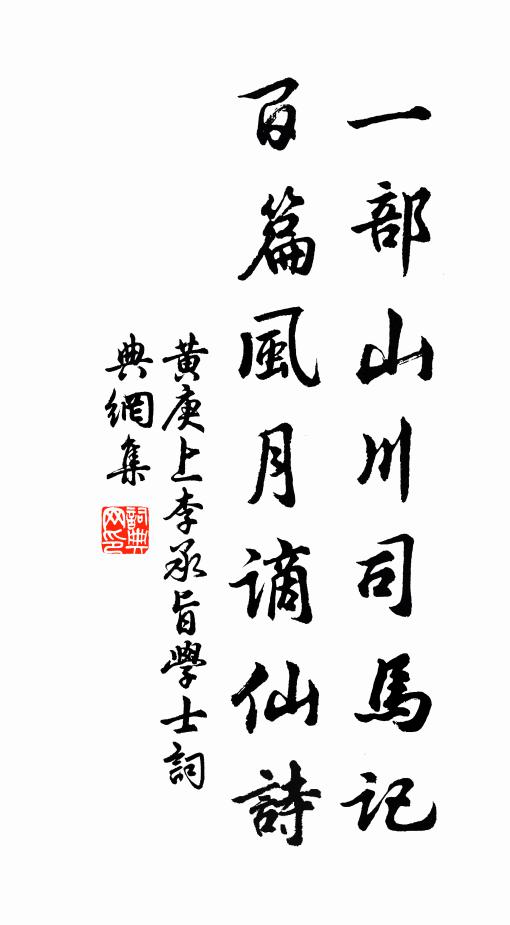 一部山川司馬記
百篇風月謫仙詩
黃庚上李承旨學士詞
典網集
詞典網印